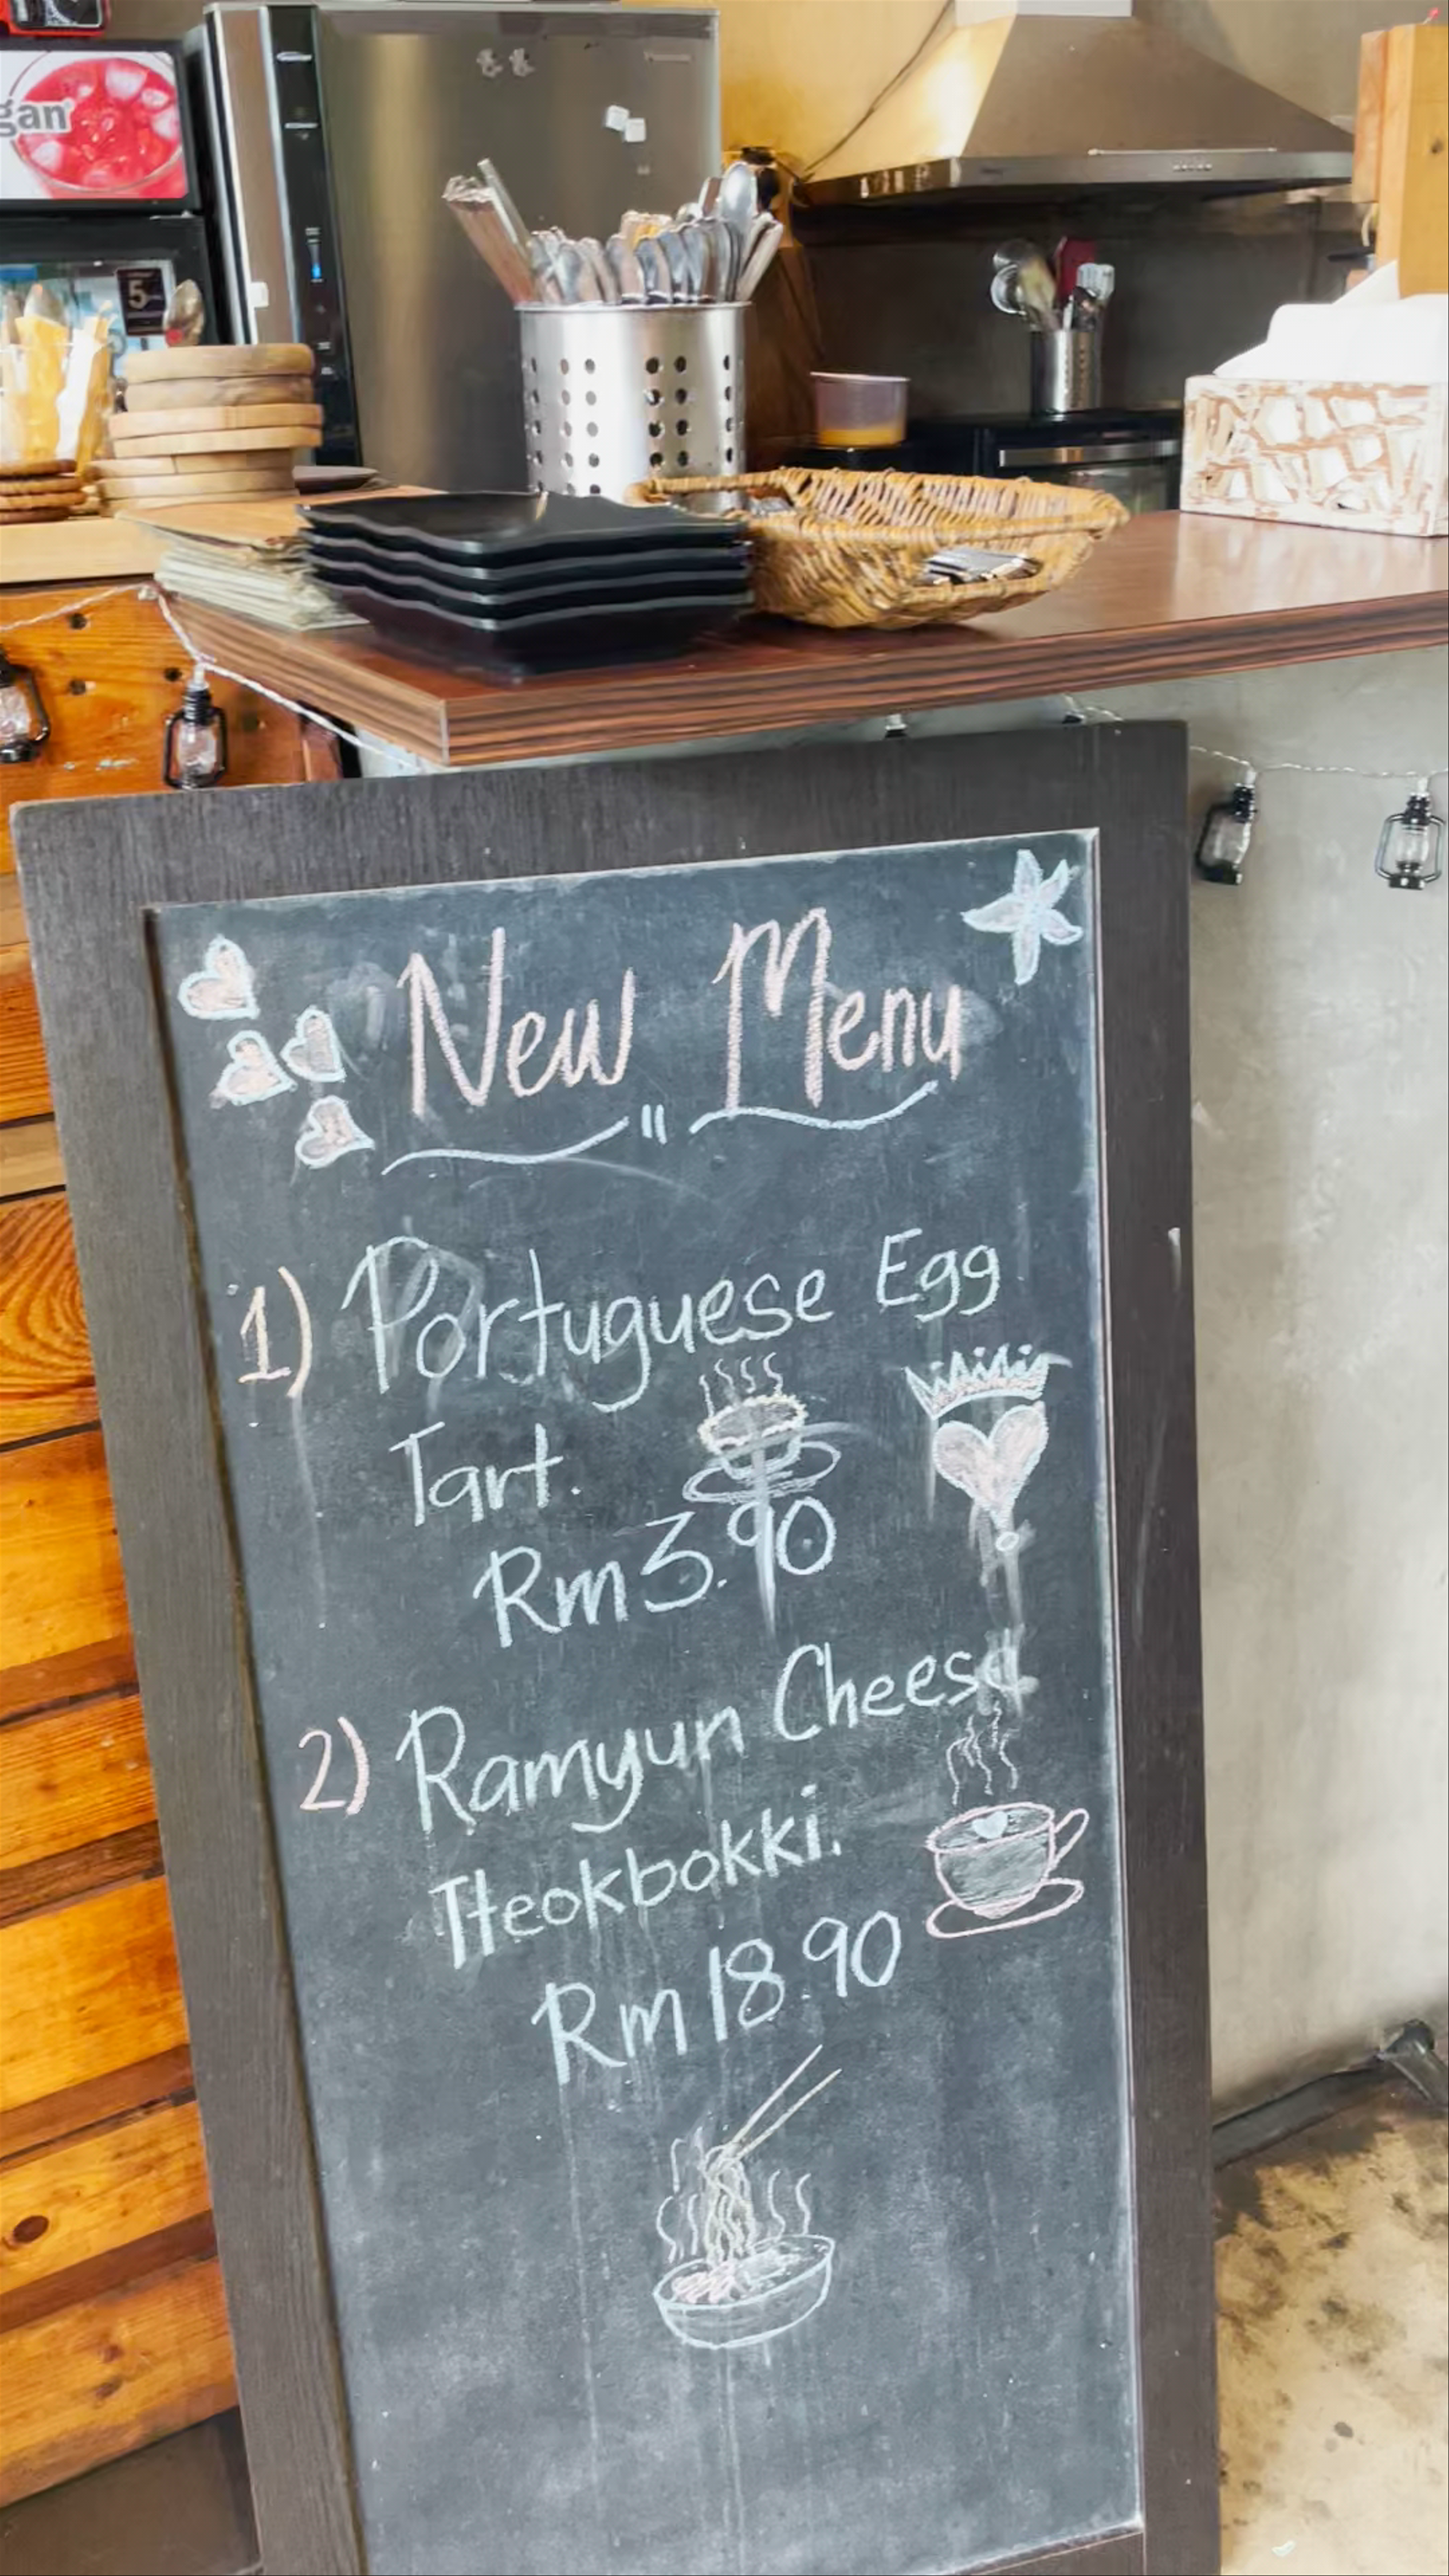 gan
5
New Menu
1) Portuguese Egg
Tart.
Rm 3.90
2) Ramyun Cheese
Tteokbokki.
Rm 18.90